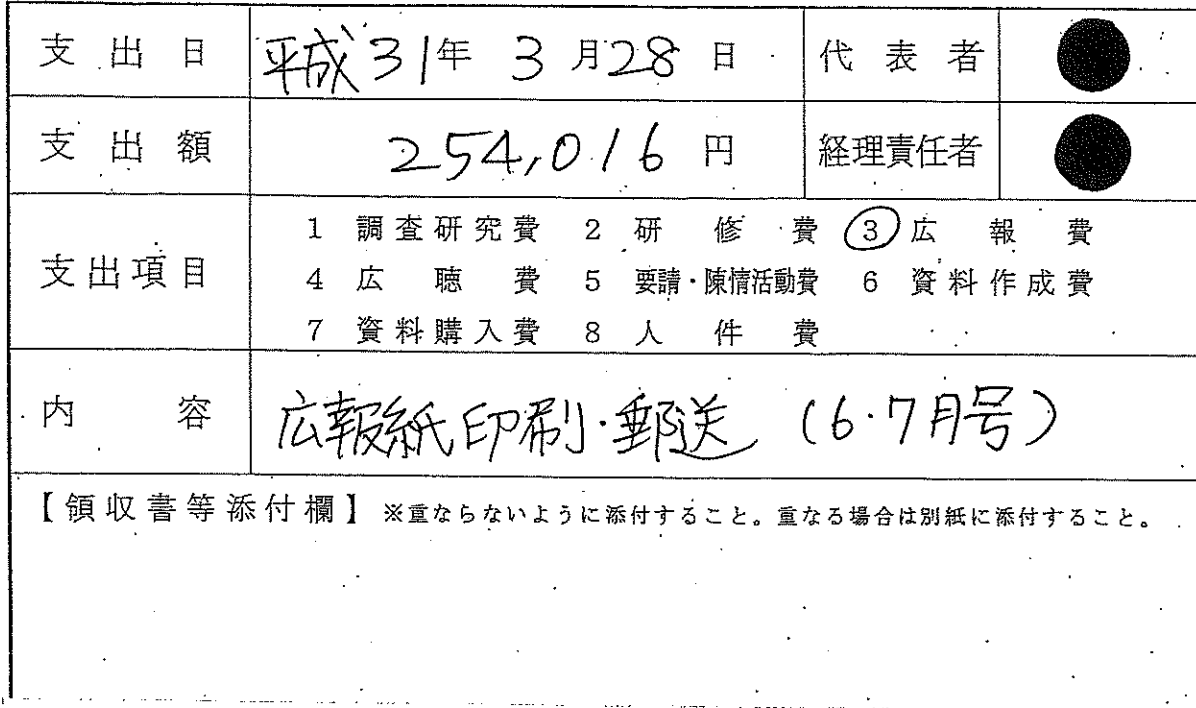 支出日 平成31年 3月28日 代表者
支出額 254,016円 経理責任者
支出項目
1 調査研究費 2 研修費 ③ 広報費
4 広聴費 5 要請・陳情活動費 6 資料作成費
7 資料購入費 8 人件費
内容 広報紙印刷・郵送 (6・7月号)
【領収書等添付欄】 ※重ならないように添付すること。重なる場合は別紙に添付すること。